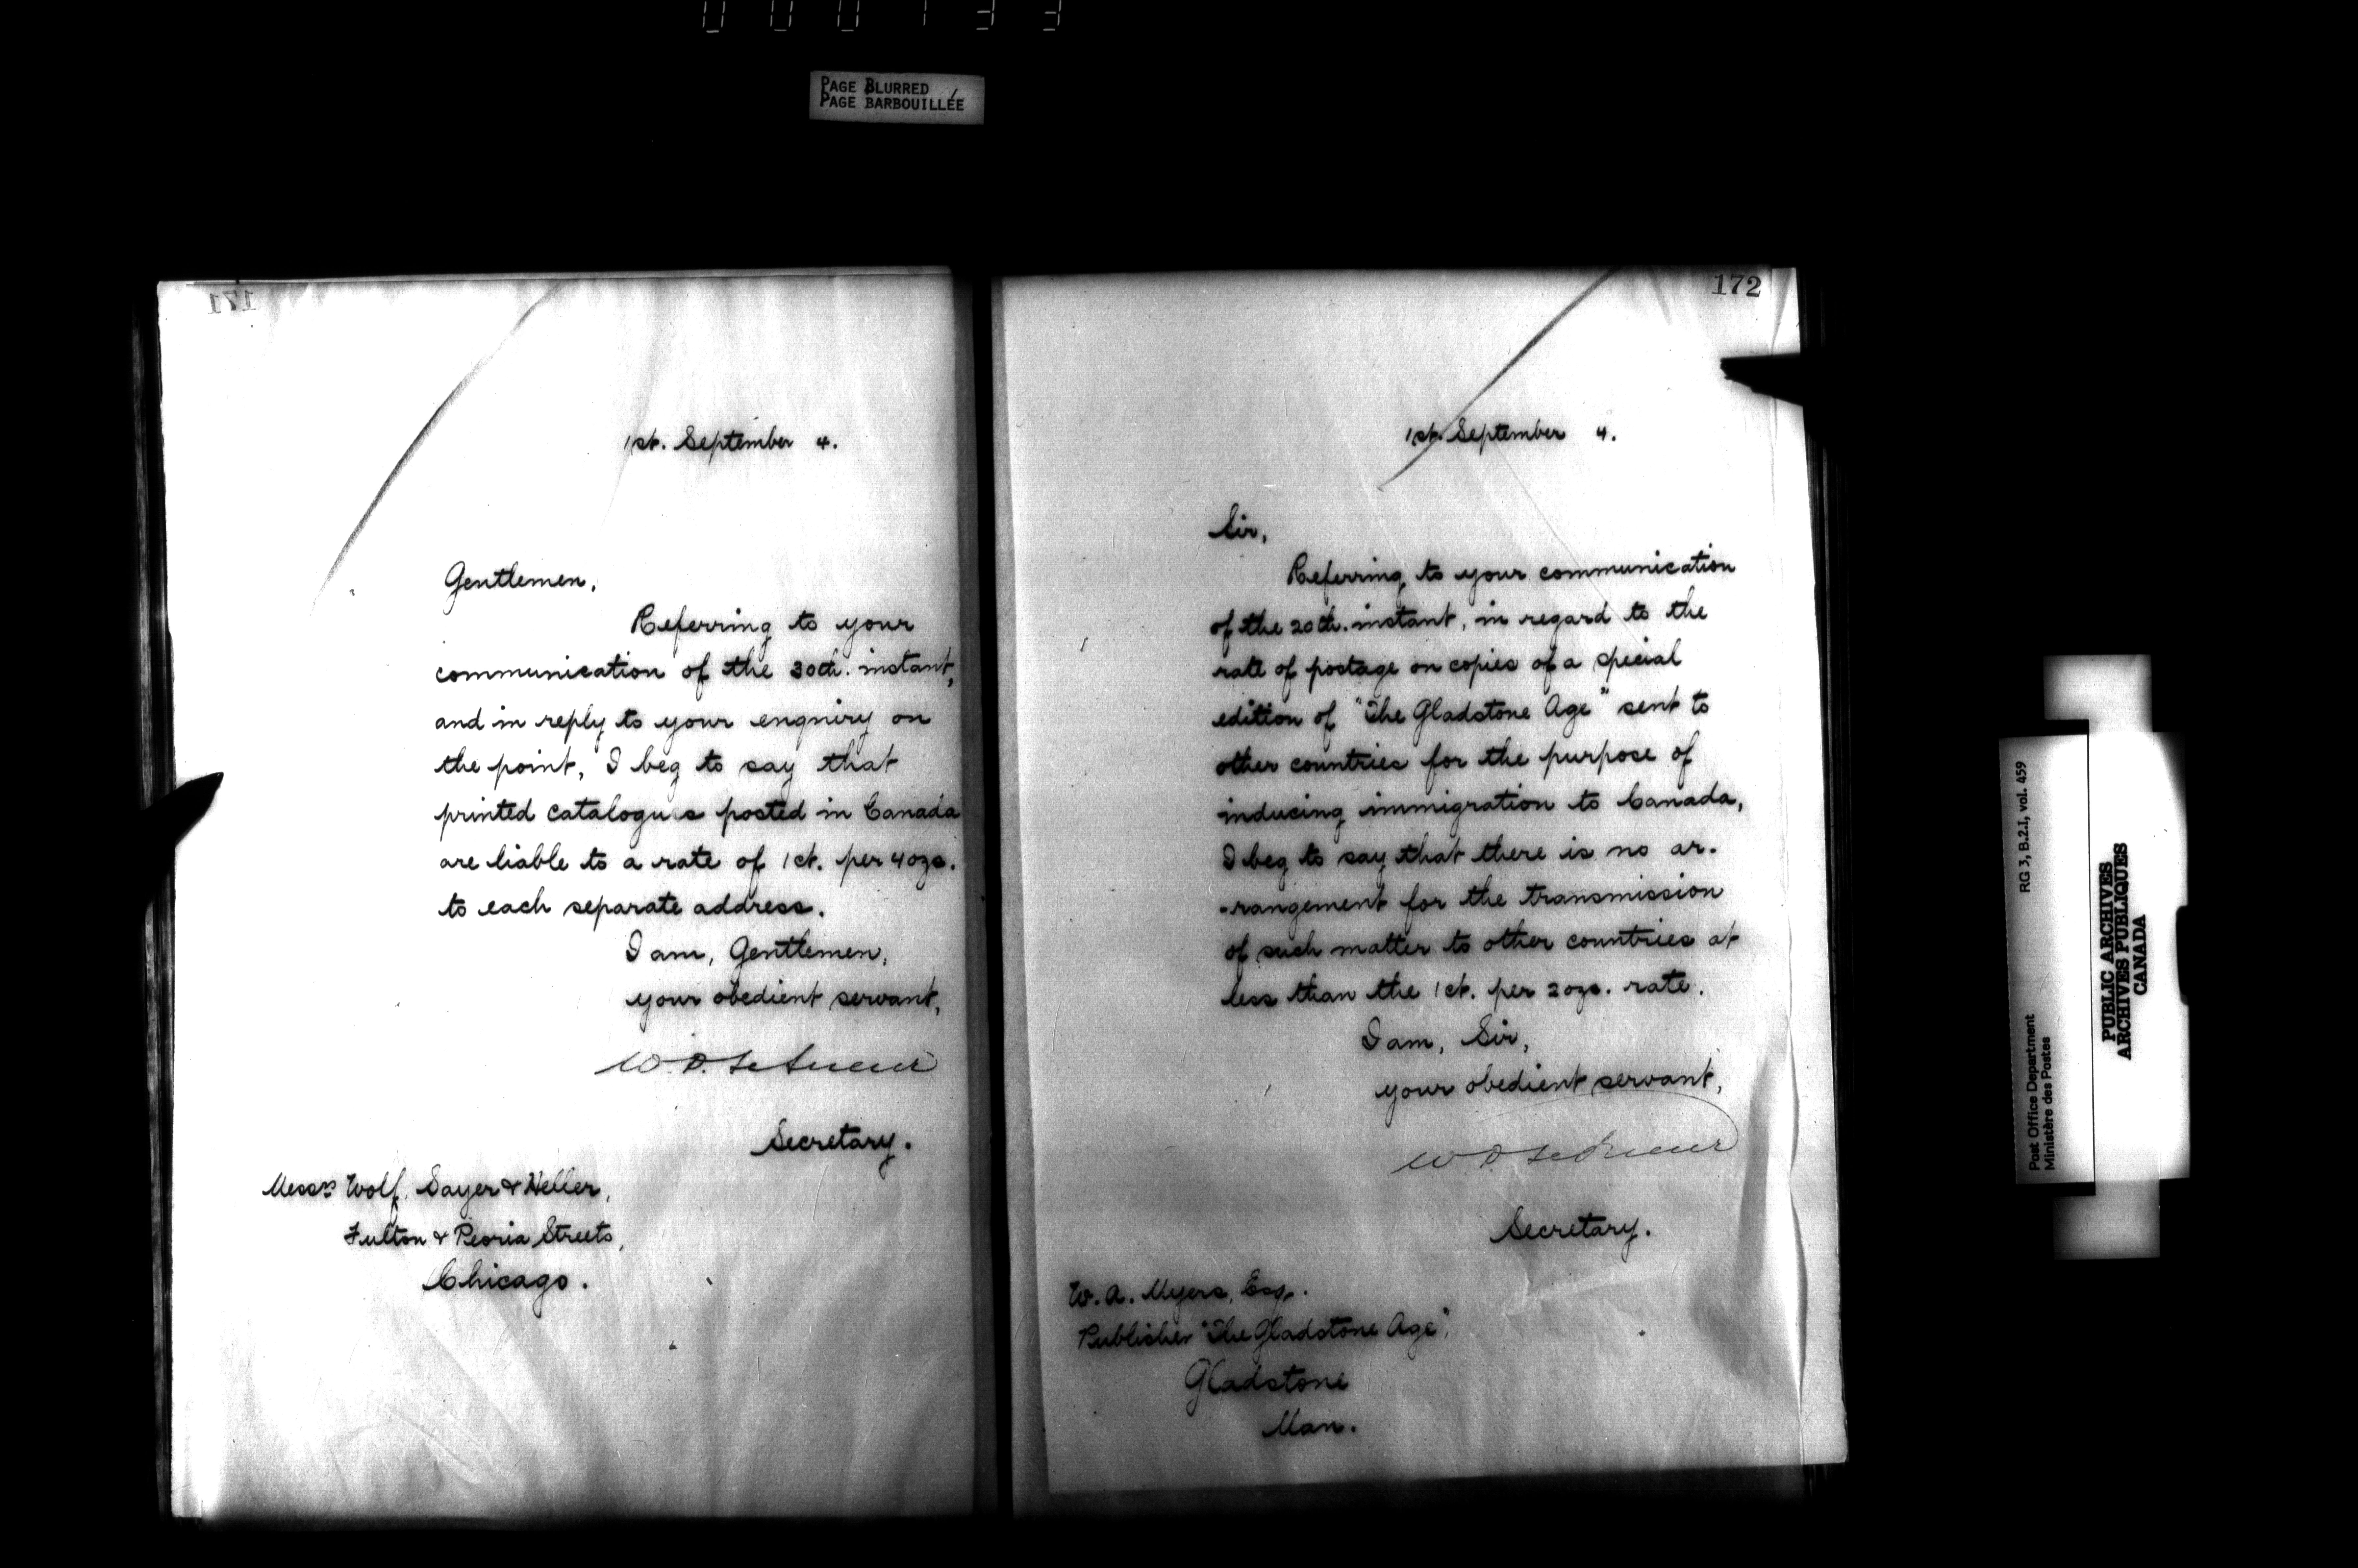 000133
PAGE BLURRED
PAGE BARBOUILLÉE
171
1st. September 4.
Gentlemen,
Referring to your
communication of the 30th. instant,
and in reply to your enquiry on
the point, I beg to say that
printed catalogues posted in Canada
are liable to a rate of 1ct. per 4ozs.
to each separate address.
I am, Gentlemen,
your obedient servant,
W. D. LeSueur
Secretary.
Messrs Wolf, Sayer & Heller,
Fulton & Peoria Streets,
Chicago.
172
1st. September 4.
Sir,
Referring to your communication
of the 20th. instant, in regard to the
rate of postage on copies of a special
edition of "The Gladstone Age" sent to
other countries for the purpose of
inducing immigration to Canada,
I beg to say that there is no ar-
-rangement for the transmission
of such matter to other countries at
less than the 1ct. per 2ozs. rate.
I am, Sir,
your obedient servant,
W D LeSueur
Secretary.
W. A. Myers, Esq.
Publisher "The Gladstone Age",
Gladstone
Man.
RG 3, B.2.1, vol. 459
Post Office Department
Ministère des Postes
PUBLIC ARCHIVES
ARCHIVES PUBLIQUES
CANADA